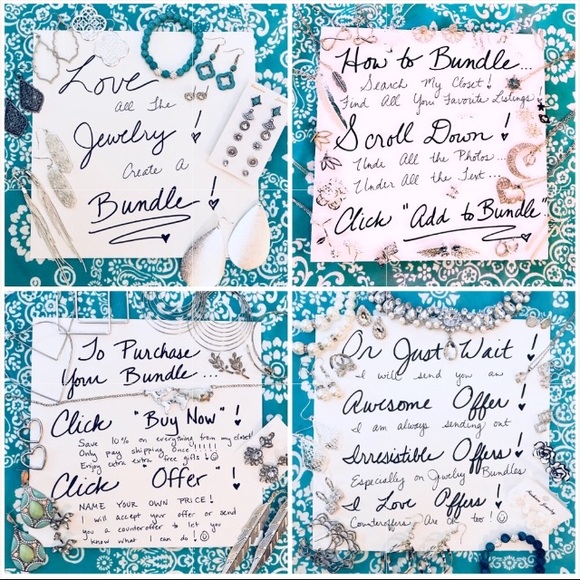 Love
All The
Jewelry!
Create A
Bundle!
How to Bundle...
Search My Closet!
Find All You Favorite Listings!
Scroll Down!
Unde All the Photos...
Under All the Text...
Click "Add to Bundle"
To Purchase
Your Bundle...
Click "Buy Now"!
Save 10% on everything from my closet!
Only pay shipping once!!!!!
Enjoy extra extra free gifts!
Click "Offer"!
NAME YOUR OWN PRICE!
I will accept your offer or send
you a counteroffer to let you
know what I can do!
Or Just Wait!
I will send you an
Awesome Offer!
I am always sending out
Irresistible Offers!
Especially on Jewelry Bundles
I Love Offers!
Counteroffers Are Ok too!